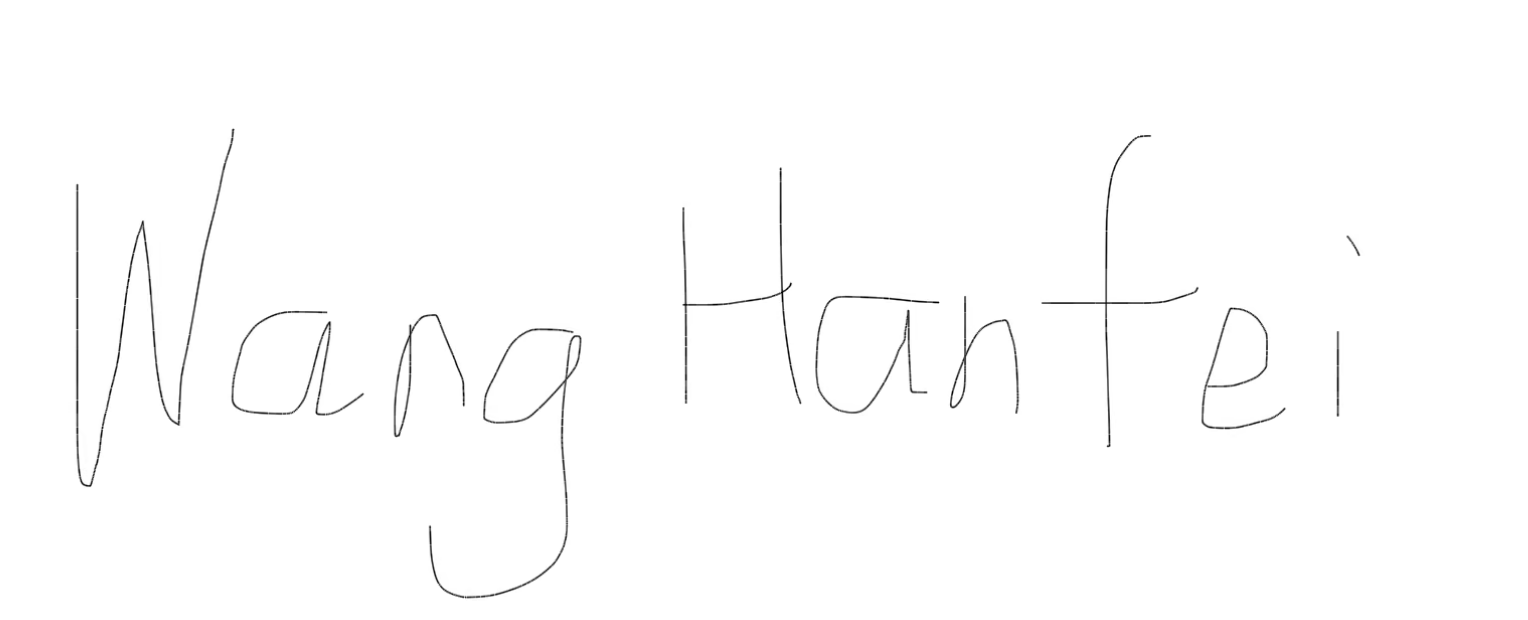 Wang Hanfei